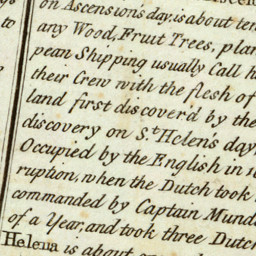 on Ascensions day, is about
any Wood, Fruit Trees,
to
pean Shipping usually Call
their Crew with the flesh of
land first discover'd by the
discovery on S.t Helens day,
Occupied by the English in
ruption, when the Dutch took
commanded by Captain
of a Year, and took three
Helena is about